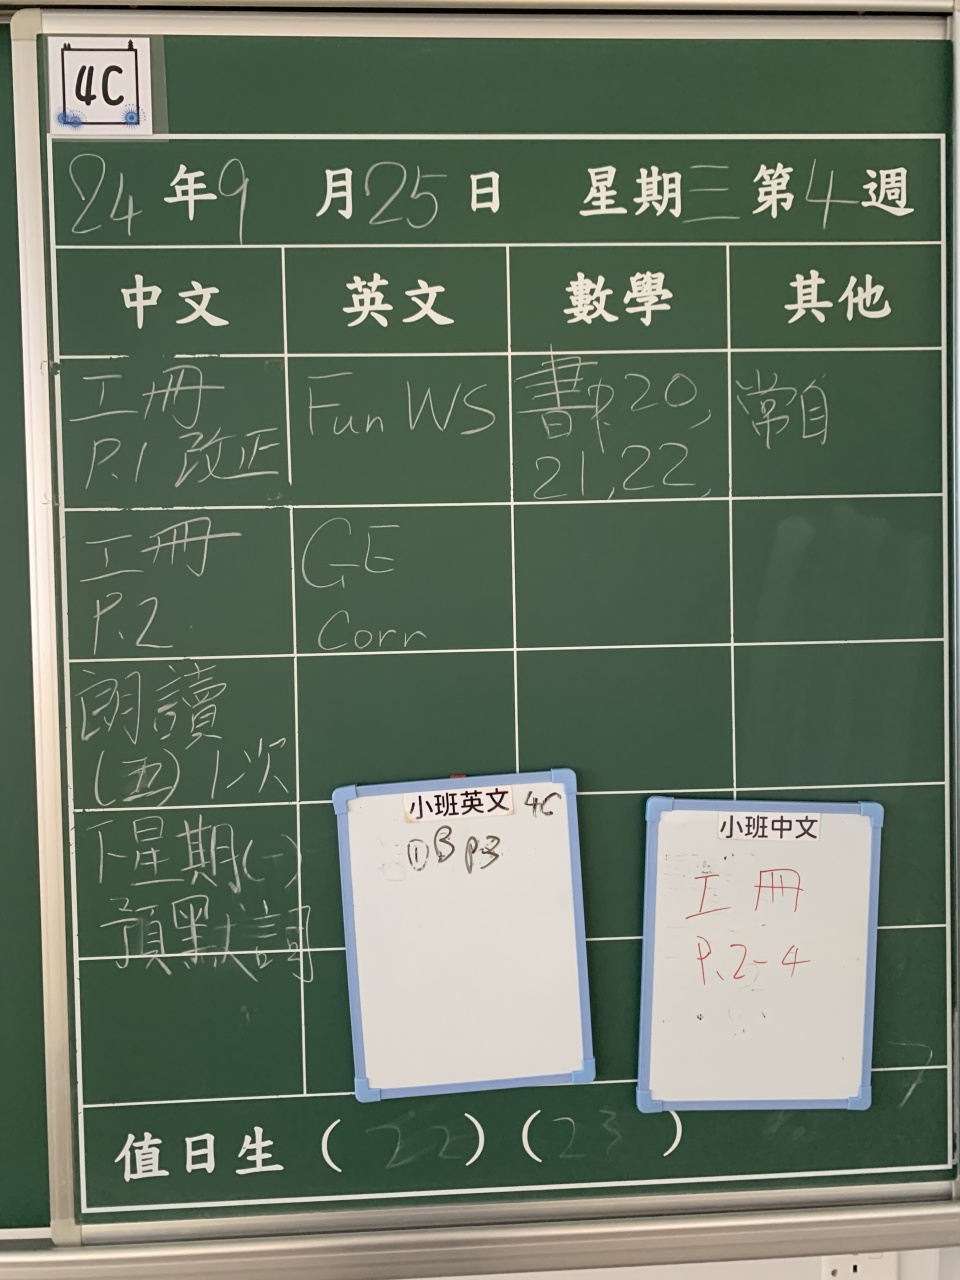 4C
24年9月25日 星期三第4週
中文 英文 數學 其他
工冊
P.1 改正
Fun WS
書P.20,
21,22,
常自
工冊
P.2
GE
Corr
朗讀
(五) 1次
下星期(一)
預默詞
小班英文 4C
①B P3
小班中文
工冊
P.2-4
值日生 ( 22 ) ( 23 )